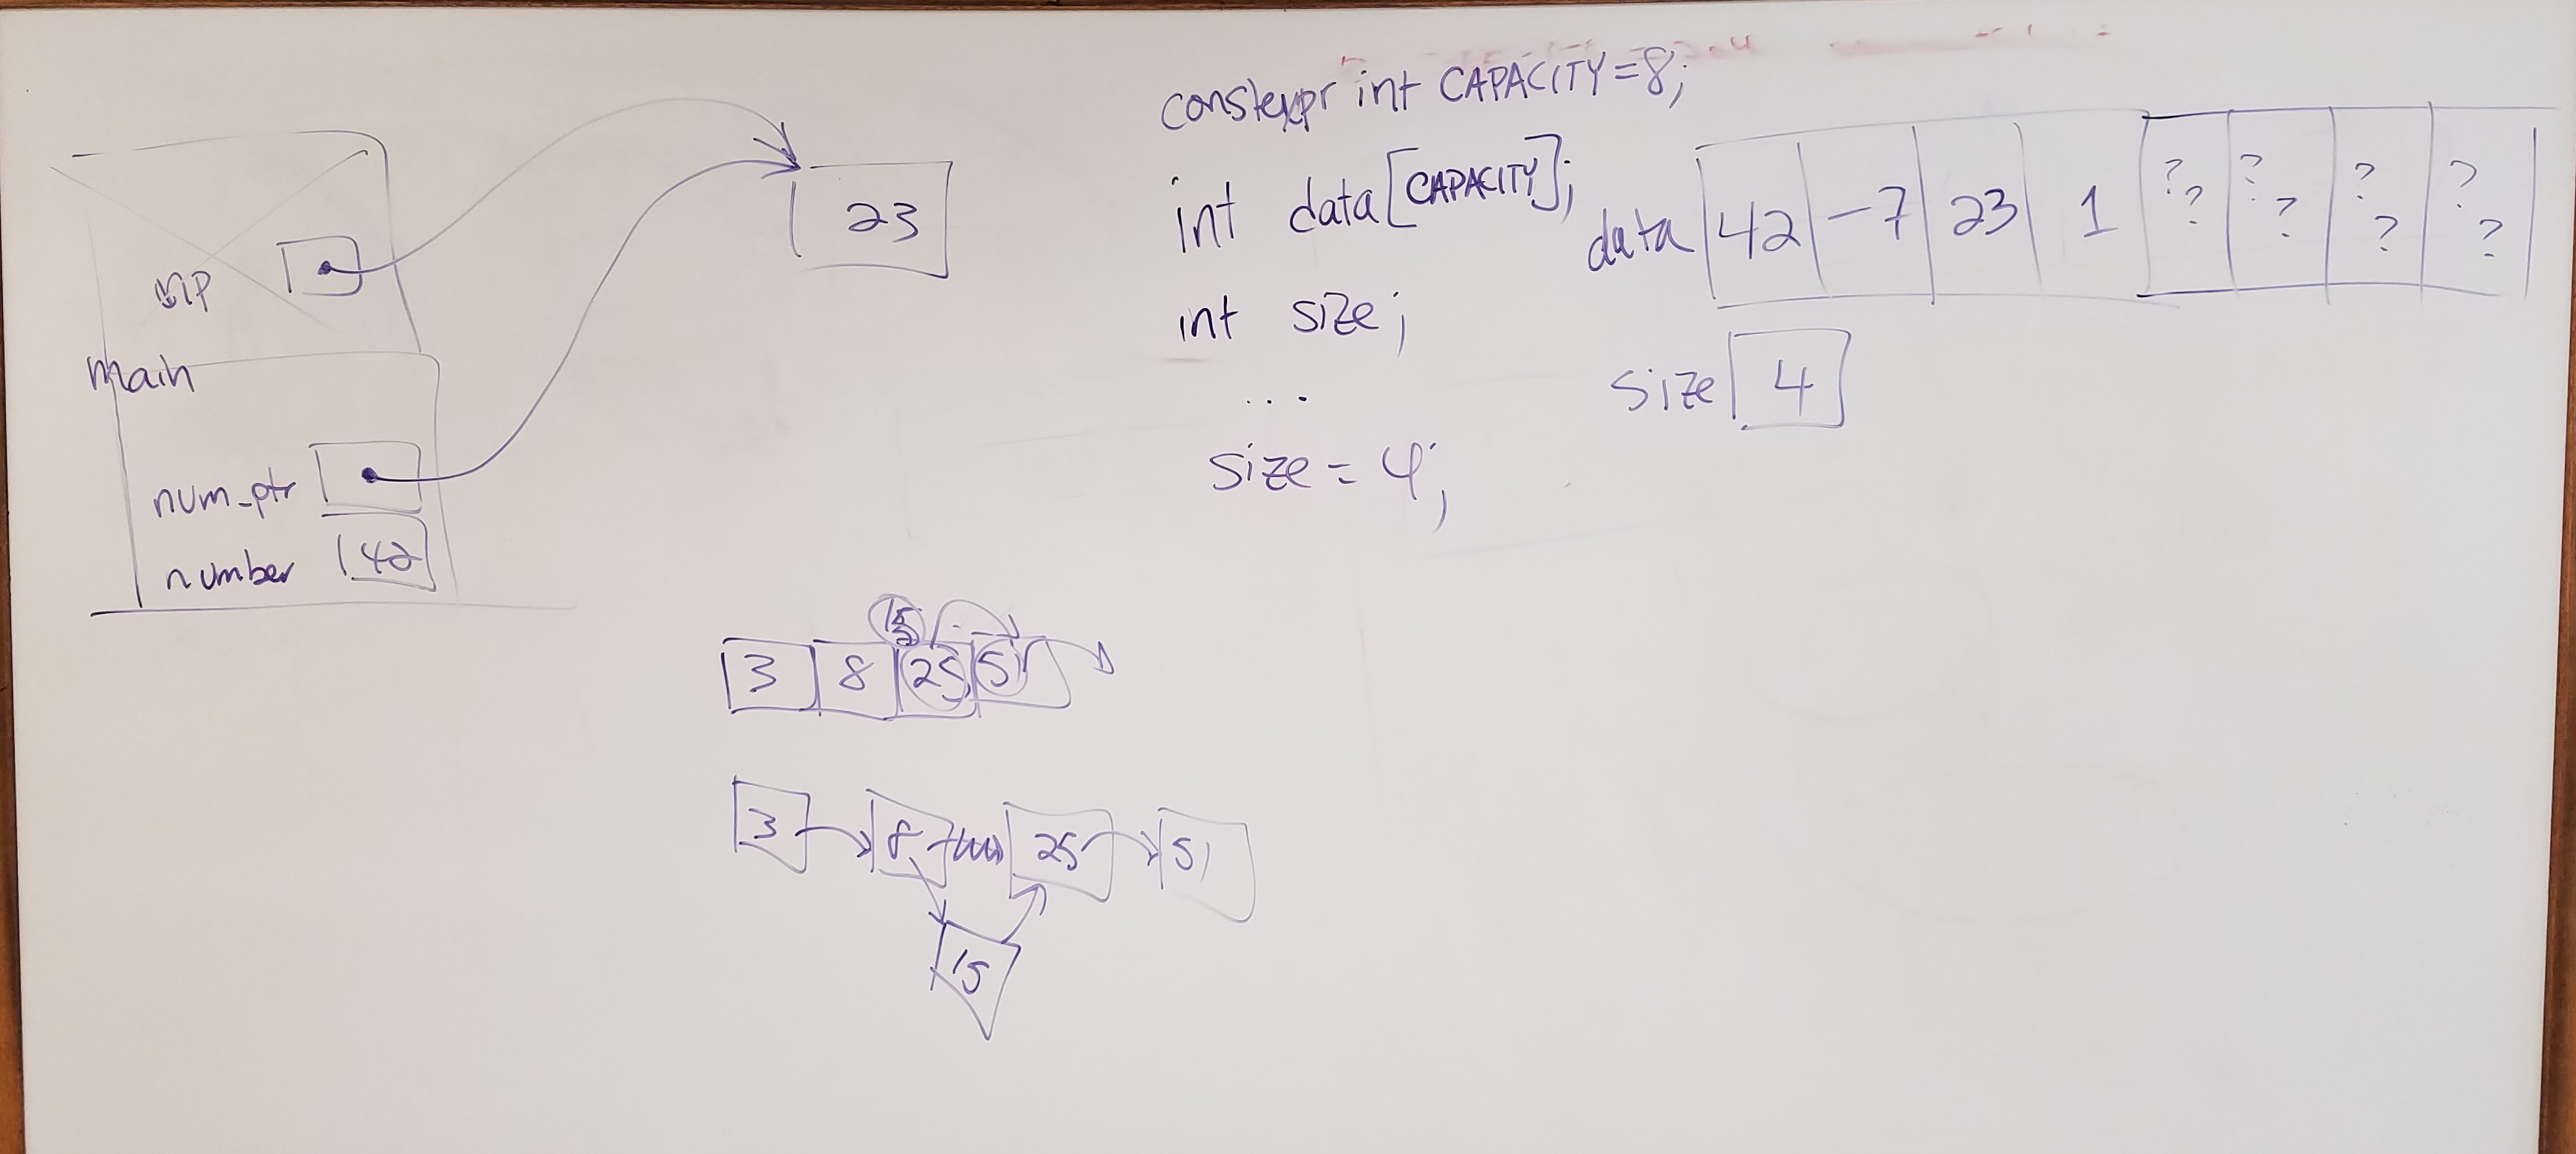 23
main
num_ptr
number 42
constexpr int CAPACITY=8;
int data[CAPACITY];
int size;
...
size = 4;
data 42 -7 23 1 ? ? ? ? ? ? ? ?
size 4
15
3 8 25 51
3 8 25 51
15